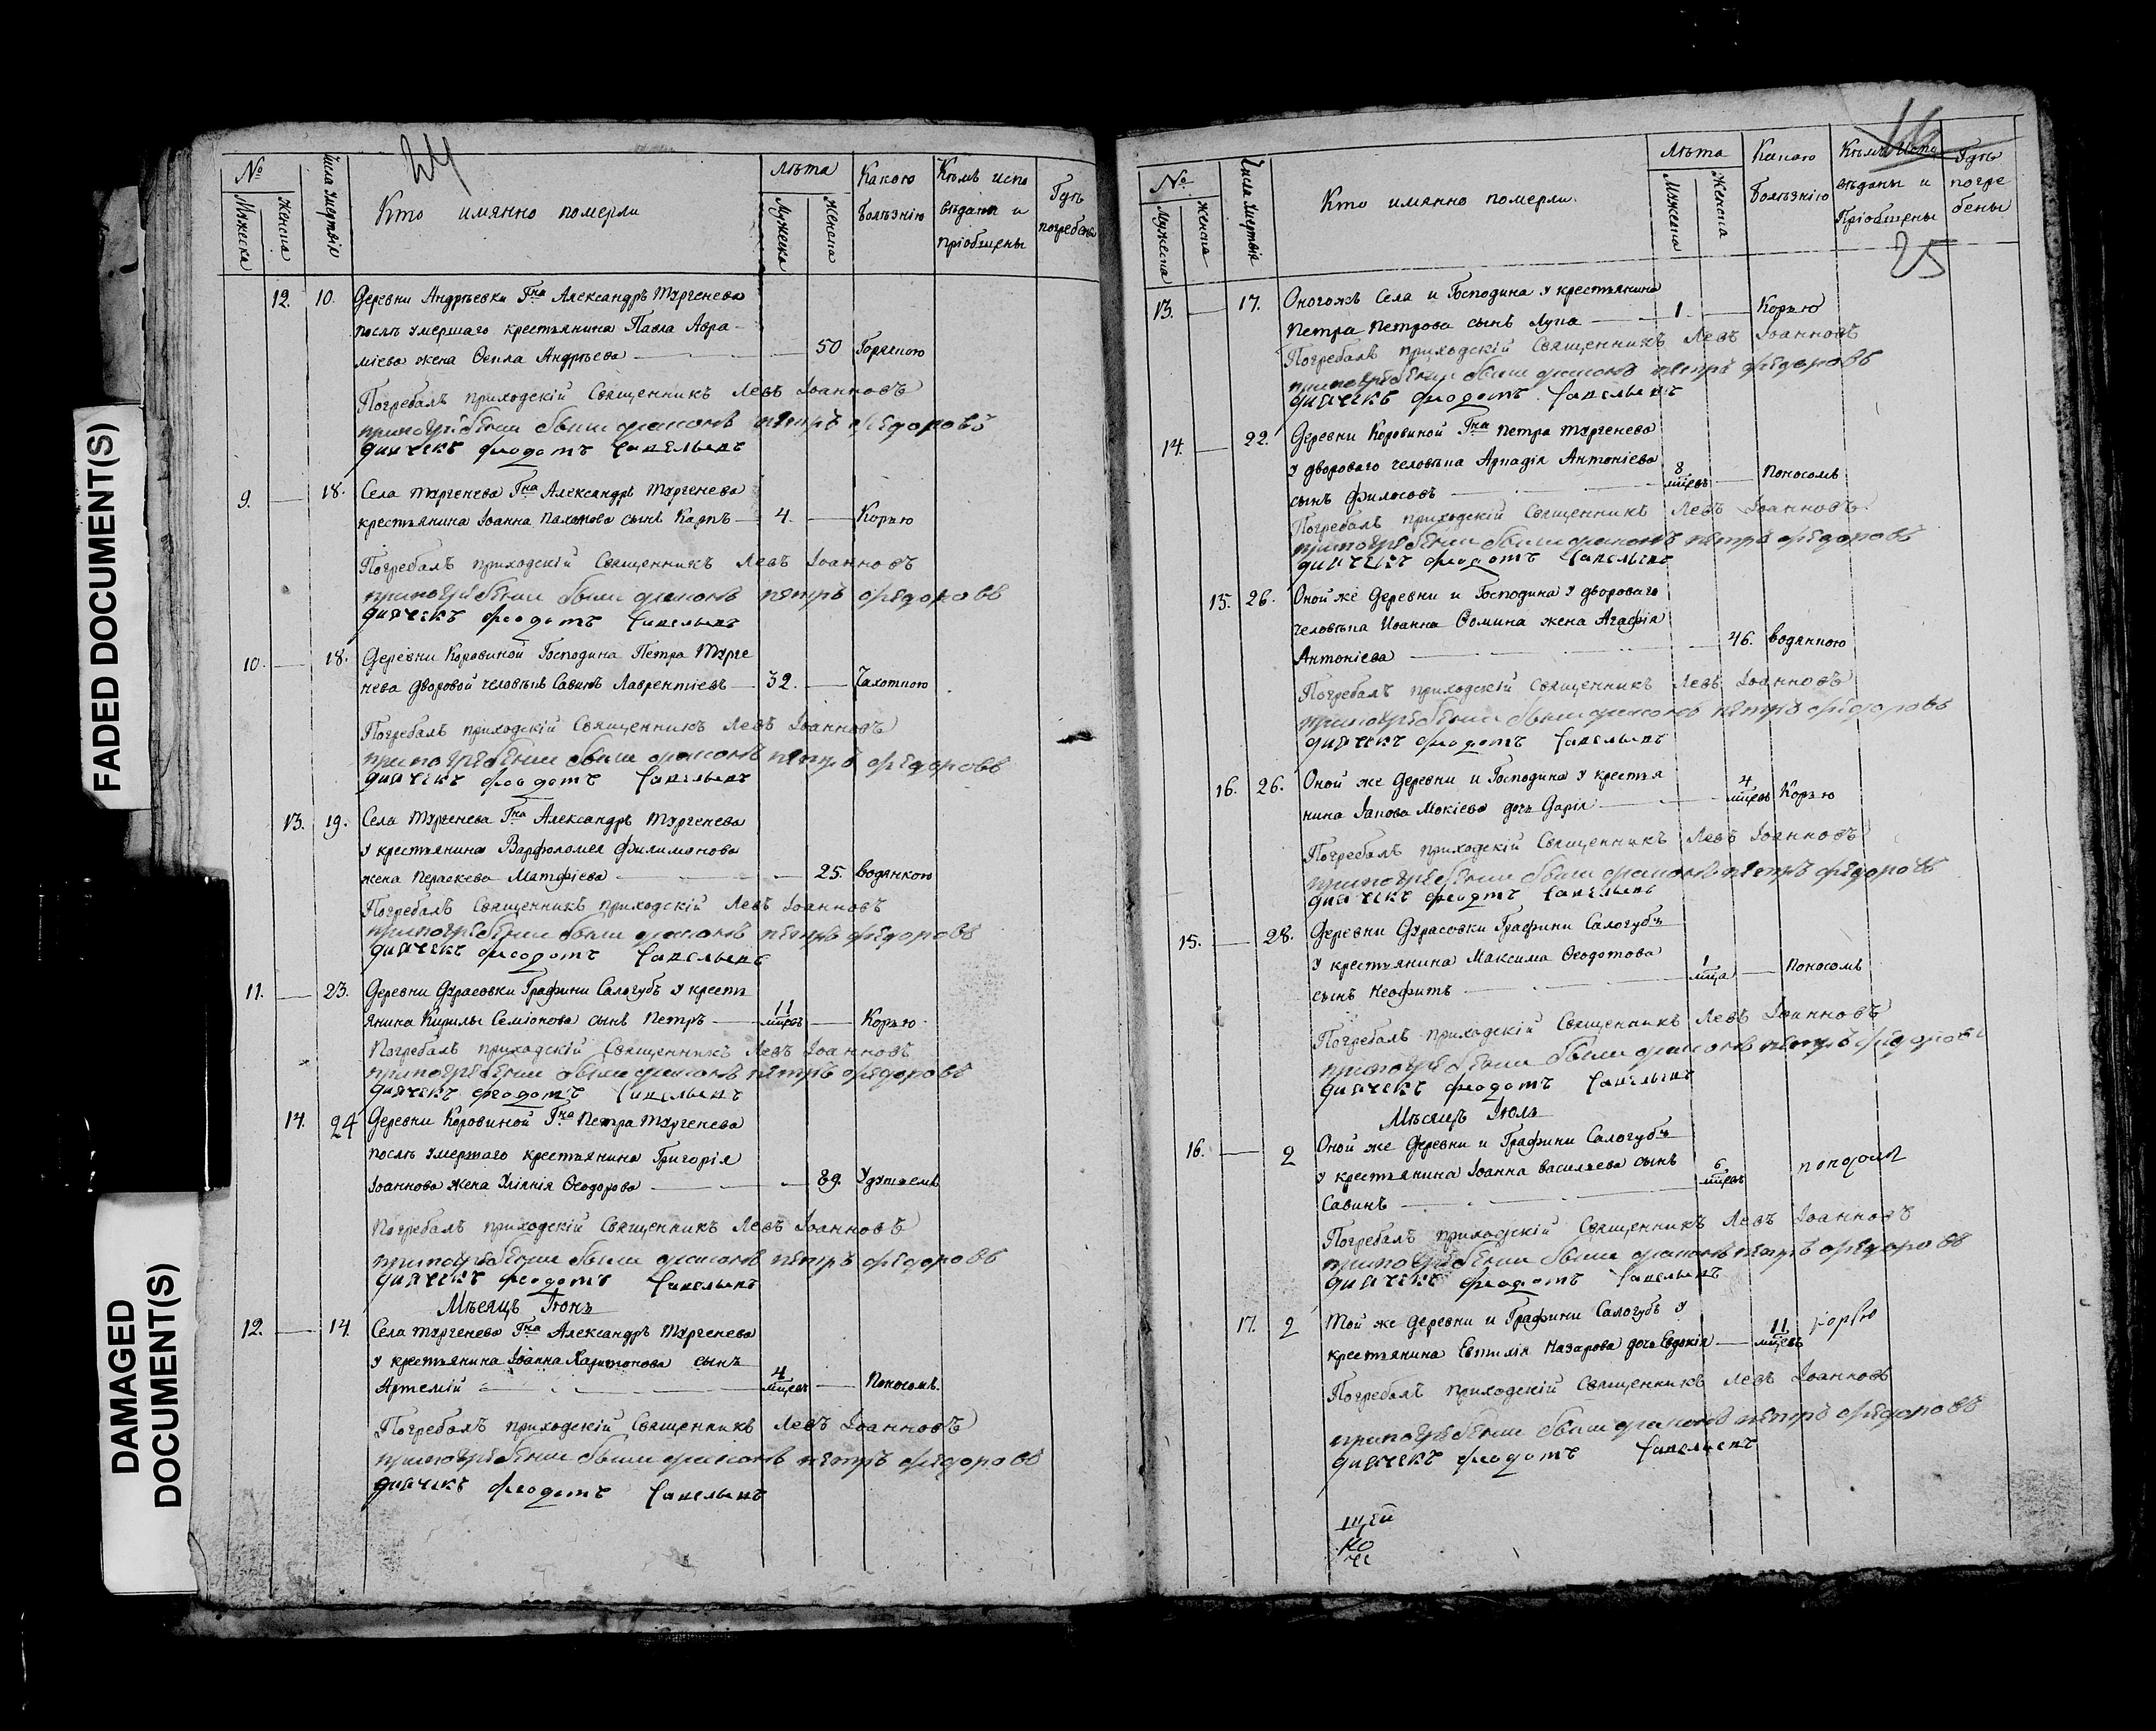 FADED DOCUMENT(S)
DAMAGED
DOCUMENT(S)
24
№
Мужеска
Женска
Числа Умертвія
Кто имянно померли
Лѣта
Мужеска
Женска
Какою
Болѣзнію
Кѣмъ испо
вѣданы и
пріобщены
Гдѣ
погребены
12. 10. Деревни Андрѣевки Гна Александръ Тургенева
послѣ умершаго крестьянина Павла Авра-
міева жена Ѳекла Андрѣева 50 Горячкою
Погребалъ приходскій Священникъ Левъ Іоанновъ
при погребении были диаконъ петръ федоровъ
дьячекъ феодотъ Савельевъ
9. 18. Села Тургенева Гна Александръ Тургенева
крестьянина Іоанна Пахомова сынъ Карпъ 4. Корью
Погребалъ приходскій Священникъ Левъ Іоанновъ
при погребении были диаконъ петръ федоровъ
дьячекъ феодотъ Савельевъ
10. 18. Деревни Коровиной Господина Петра Турге
нева дворовой человѣкъ Савинъ Лаврентіевъ 32. Чахоткою
Погребалъ приходскій Священникъ Левъ Іоанновъ
при погребении были диаконъ петръ федоровъ
дьячекъ феодотъ Савельевъ
13. 19. Села Тургенева Гна Александръ Тургенева
у крестьянина Варфоломея Филимонова
жена Параскева Матфіева 25. водянкою
Погребалъ Священникъ приходскій Левъ Іоанновъ
при погребении были диаконъ петръ федоровъ
дьячекъ феодотъ Савельевъ
11. 23. Деревни Дурасовки Графини Салогубъ у кресть
янина Кирилы Семіонова сынъ Петръ 11 мцевъ Корью
Погребалъ приходскій Священникъ Левъ Іоанновъ
при погребении были диаконъ петръ федоровъ
дьячекъ феодотъ Савельевъ
14. 24 Деревни Коровиной Гна Петра Тургенева
послѣ умершаго крестьянина Григорія
Іоаннова жена Ѳеодорова 89. Удушьемъ
Погребалъ приходскій Священникъ Левъ Іоанновъ
при погребении были диаконъ петръ федоровъ
дьячекъ феодотъ Савельевъ
Мѣсяцъ Іюнь
12. 14. Села Тургенева Гна Александръ Тургенева
у крестьянина Іоанна Харитонова сынъ
Артемій 4 мцевъ Поносомъ.
Погребалъ приходскій Священникъ Левъ Іоанновъ
при погребении были диаконъ петръ федоровъ
дьячекъ феодотъ Савельевъ
16
25
№
Мужеска
Женска
Числа Умертвія
Кто имянно померли.
Лѣта
Мужеска
Женска
Какою
Болѣзнію
Кѣмъ Испо
вѣданы и
Пріобщены
Гдѣ
погре
бены
13. 17. Оногожъ Села и Господина у крестьянина
Петра Петрова сынъ Лупа 1. Корью
Погребалъ приходскій Священникъ Левъ Іоанновъ
при погребении были диаконъ петръ федоровъ
дьячекъ феодотъ Савельевъ
14. 22. Деревни Коровиной Гна Петра Тургенева
у двороваго человѣка Аркадія Антоніева
сынъ 8 мцевъ Поносомъ
Погребалъ приходскій Священникъ Левъ Іоанновъ.
при погребении были диаконъ петръ федоровъ
дьячекъ феодотъ Савельевъ
15. 26. Оной же Деревни и Господина у двороваго
человѣка Иоанна Ѳомина жена Агафія
Антоніева 46. водянкою
Погребалъ приходскій Священникъ Левъ Іоанновъ
при погребении были диаконъ петръ федоровъ
дьячекъ феодотъ Савельевъ
16. 26. Оной же Деревни и Господина у крестья
нина Іакова Мокіева дочь Дарія 4 мцевъ Корью
Погребалъ приходскій Священникъ Левъ Іоанновъ
при погребении были диаконъ петръ федоровъ
дьячекъ феодотъ Савельевъ
15. 28. Деревни Дурасовки Графини Салогубъ
у крестьянина Максима Ѳеодотова
сынъ Неофитъ 1 мца Поносомъ
Погребалъ приходскій Священникъ Левъ Іоанновъ
при погребении были диаконъ петръ федоровъ
дьячекъ феодотъ Савельевъ
Мѣсяцъ Іюль
16. 2 Оной же Деревни и Графини Салогубъ
у крестьянина Іоанна Васильева сынъ
Савинъ 6 мцевъ
Погребалъ приходскій Священникъ Левъ Іоанновъ
при погребении были диаконъ петръ федоровъ
дьячекъ феодотъ Савельевъ
17. 2 Той же Деревни и Графини Салогубъ у
крестьянина Назарова дочь Евдокія 11 мцевъ корью
Погребалъ приходскій Священникъ Левъ Іоанновъ
при погребении были диаконъ петръ федоровъ
дьячекъ феодотъ Савельевъ